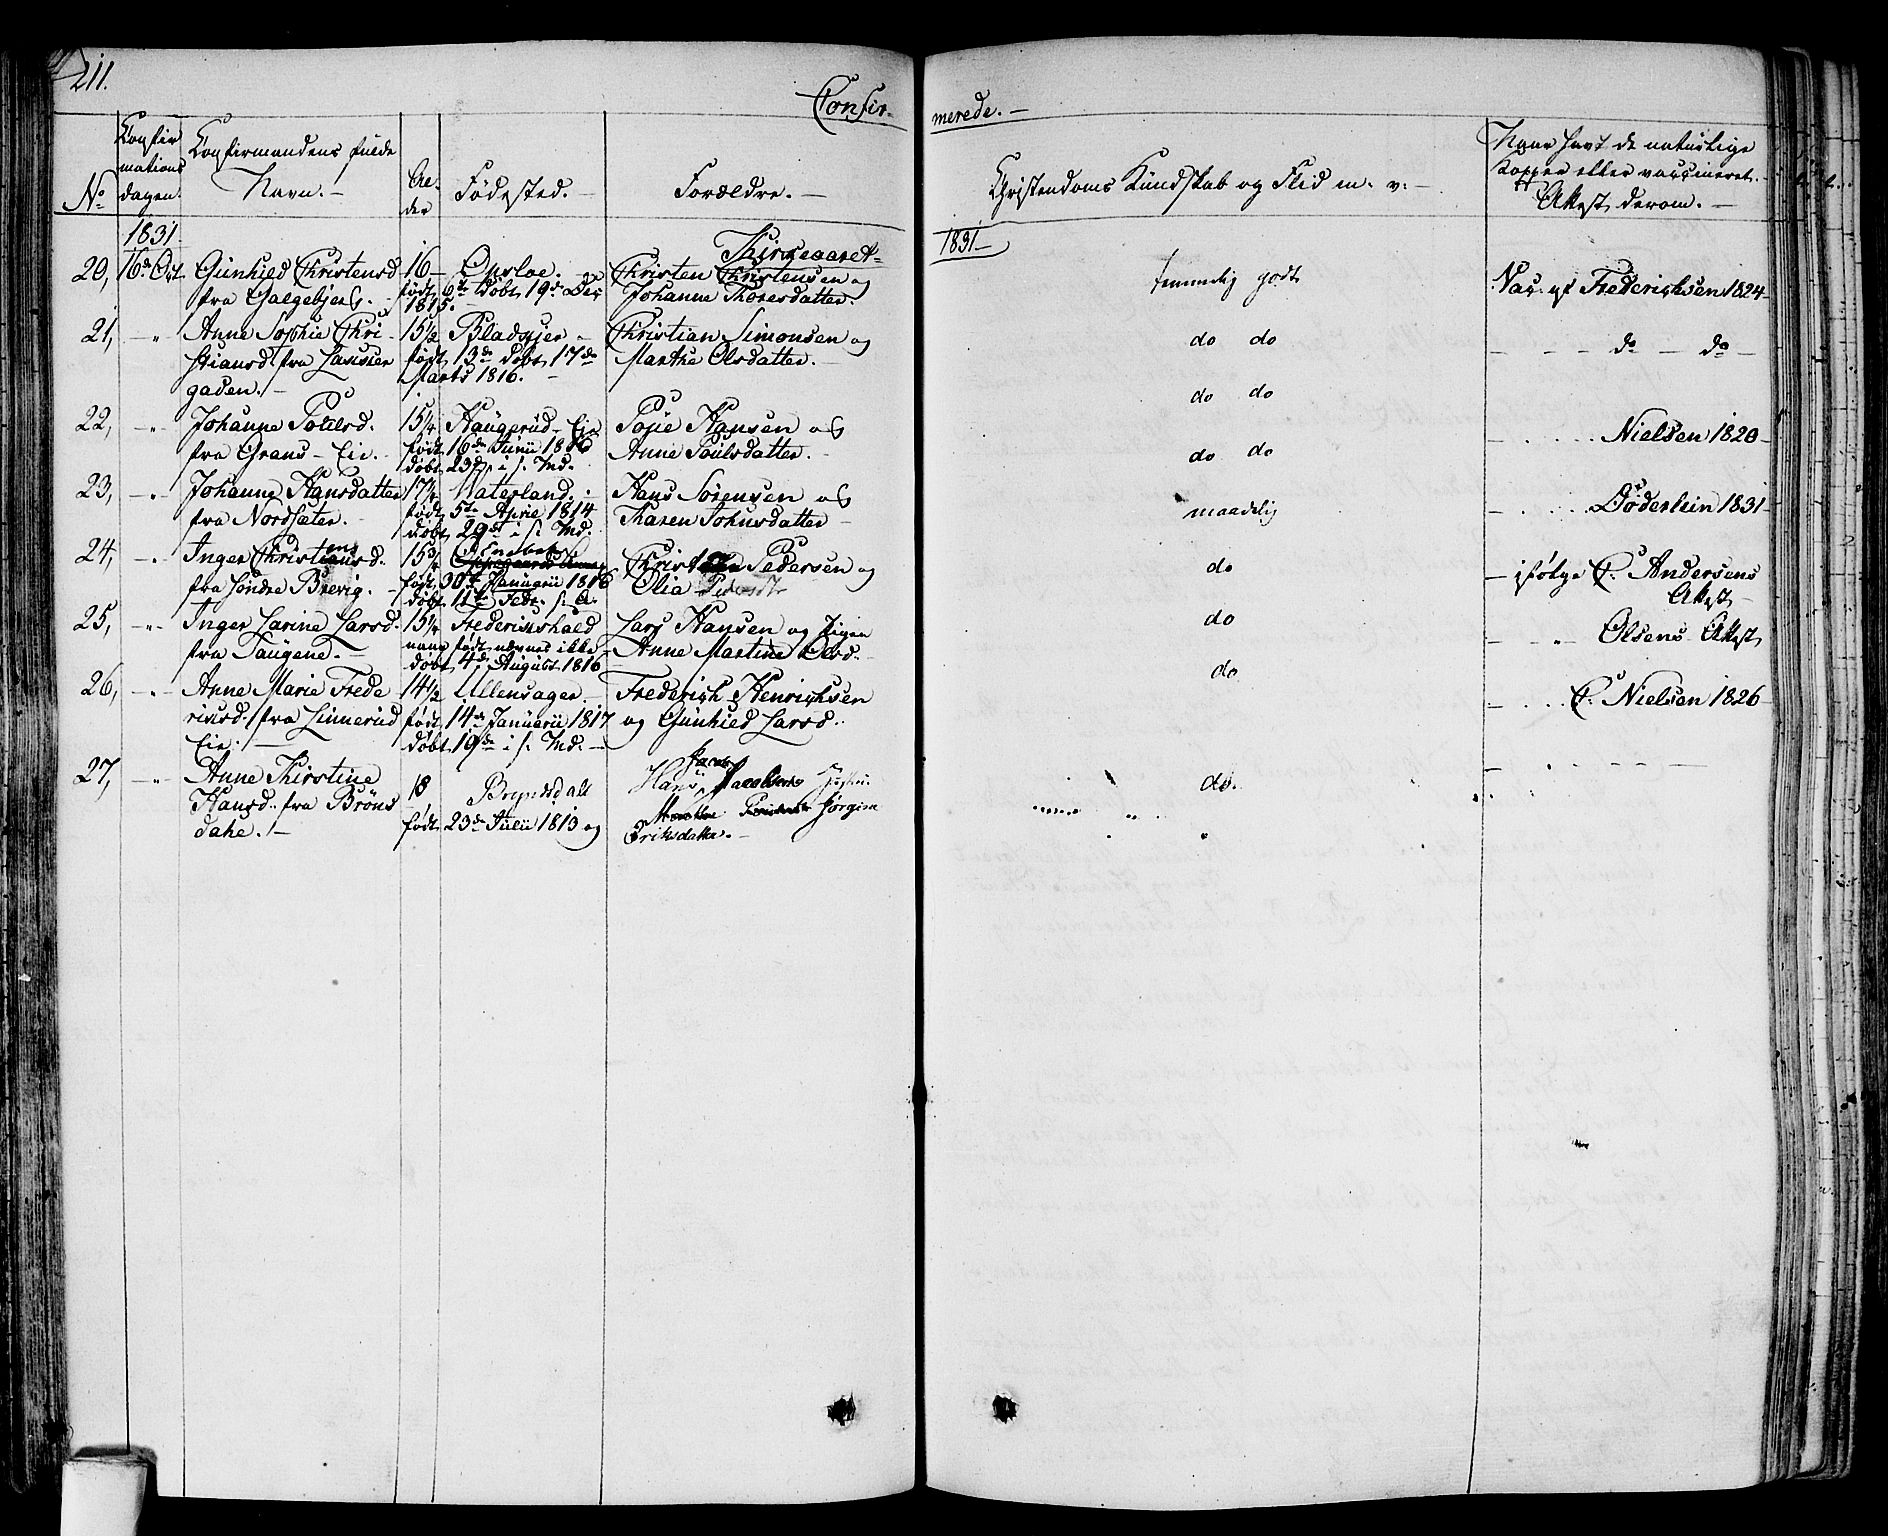 211.
Confir-
merede.-
No
Confir
mations
dagen.
Confirmandens fulde
Navn.-
Al-
der
Fødested.-
Forældre.-
Christendoms Kundskab og Flid m. v:-
Naar havt de naturlige
Kopper eller vaccineret.-
Attest derom.-
1831.
1831-
20, 16de Oct Gunhild Christensd 16- Opsloe.- Christen Christensen og
temmelig godt
Vac: af Frederichsen 1824-
fra Galgebjerg.- født 6te døbt 19de Dec Johanne Thoresdatter.
1815.
21, -"- Anne Sophie Chri- 15½ Bladsjer- Christian Simonsen og
do do
- - - do - do -
stiansd. fra født 13de døbt 17de Marthe Olsdatter.-
gaden.- Marts 1816.-
do do
22, -"- Johanne Povelsd. 15¼ Haugerud-Eie Hansen og
- . . . . . Nielsen 1820-
fra Grans-Eie.- født 16de Junii 1816 Anne Poulsdatter.-
døbt 23de i s. Md.
do do
23, -"- Johanne Hansdatter 17½ Waterland.- Hans Sørensen og
- . . . Døderlein 1831-
fra Nordsæter.- født 5te April 1814 Karen Johnsdatter-
maadelig
døbt 29de i s. Md.
24, -"- Inger Christensd. 15¾ Christen Pedersen og
do
- ifølge C. Andersens
Attest-
fra Søndre Brevig.- født 30te Januarii 1816 Olia
døbt 11te Febr. s. A.
25, -"- Inger Larine Larsd. 15¼ Frederikshald Lars Hansen og Pigen
do
- "- Olsens Attest
fra Taugene.- naar født nævnes ikke- Anne Martine Olsd.-
døbt 4de August 1816
26, -"- Anne Marie Frede 14½ Ullensager- Frederich Henrichsen
do
- . . . C. Nielsen 1826-
riksd. fra Linnerud født 14de Januarii 1817 og Gunhild Larsd.
Eie.- døbt 19de i s. Md.-
27, -"- Anne Kirstine 18 Jacob
Hansd. fra Brøns Hans Jacobsen
do.
dahl.- født 23de Julii 1813 og Jørgine
Eriksdatter.-